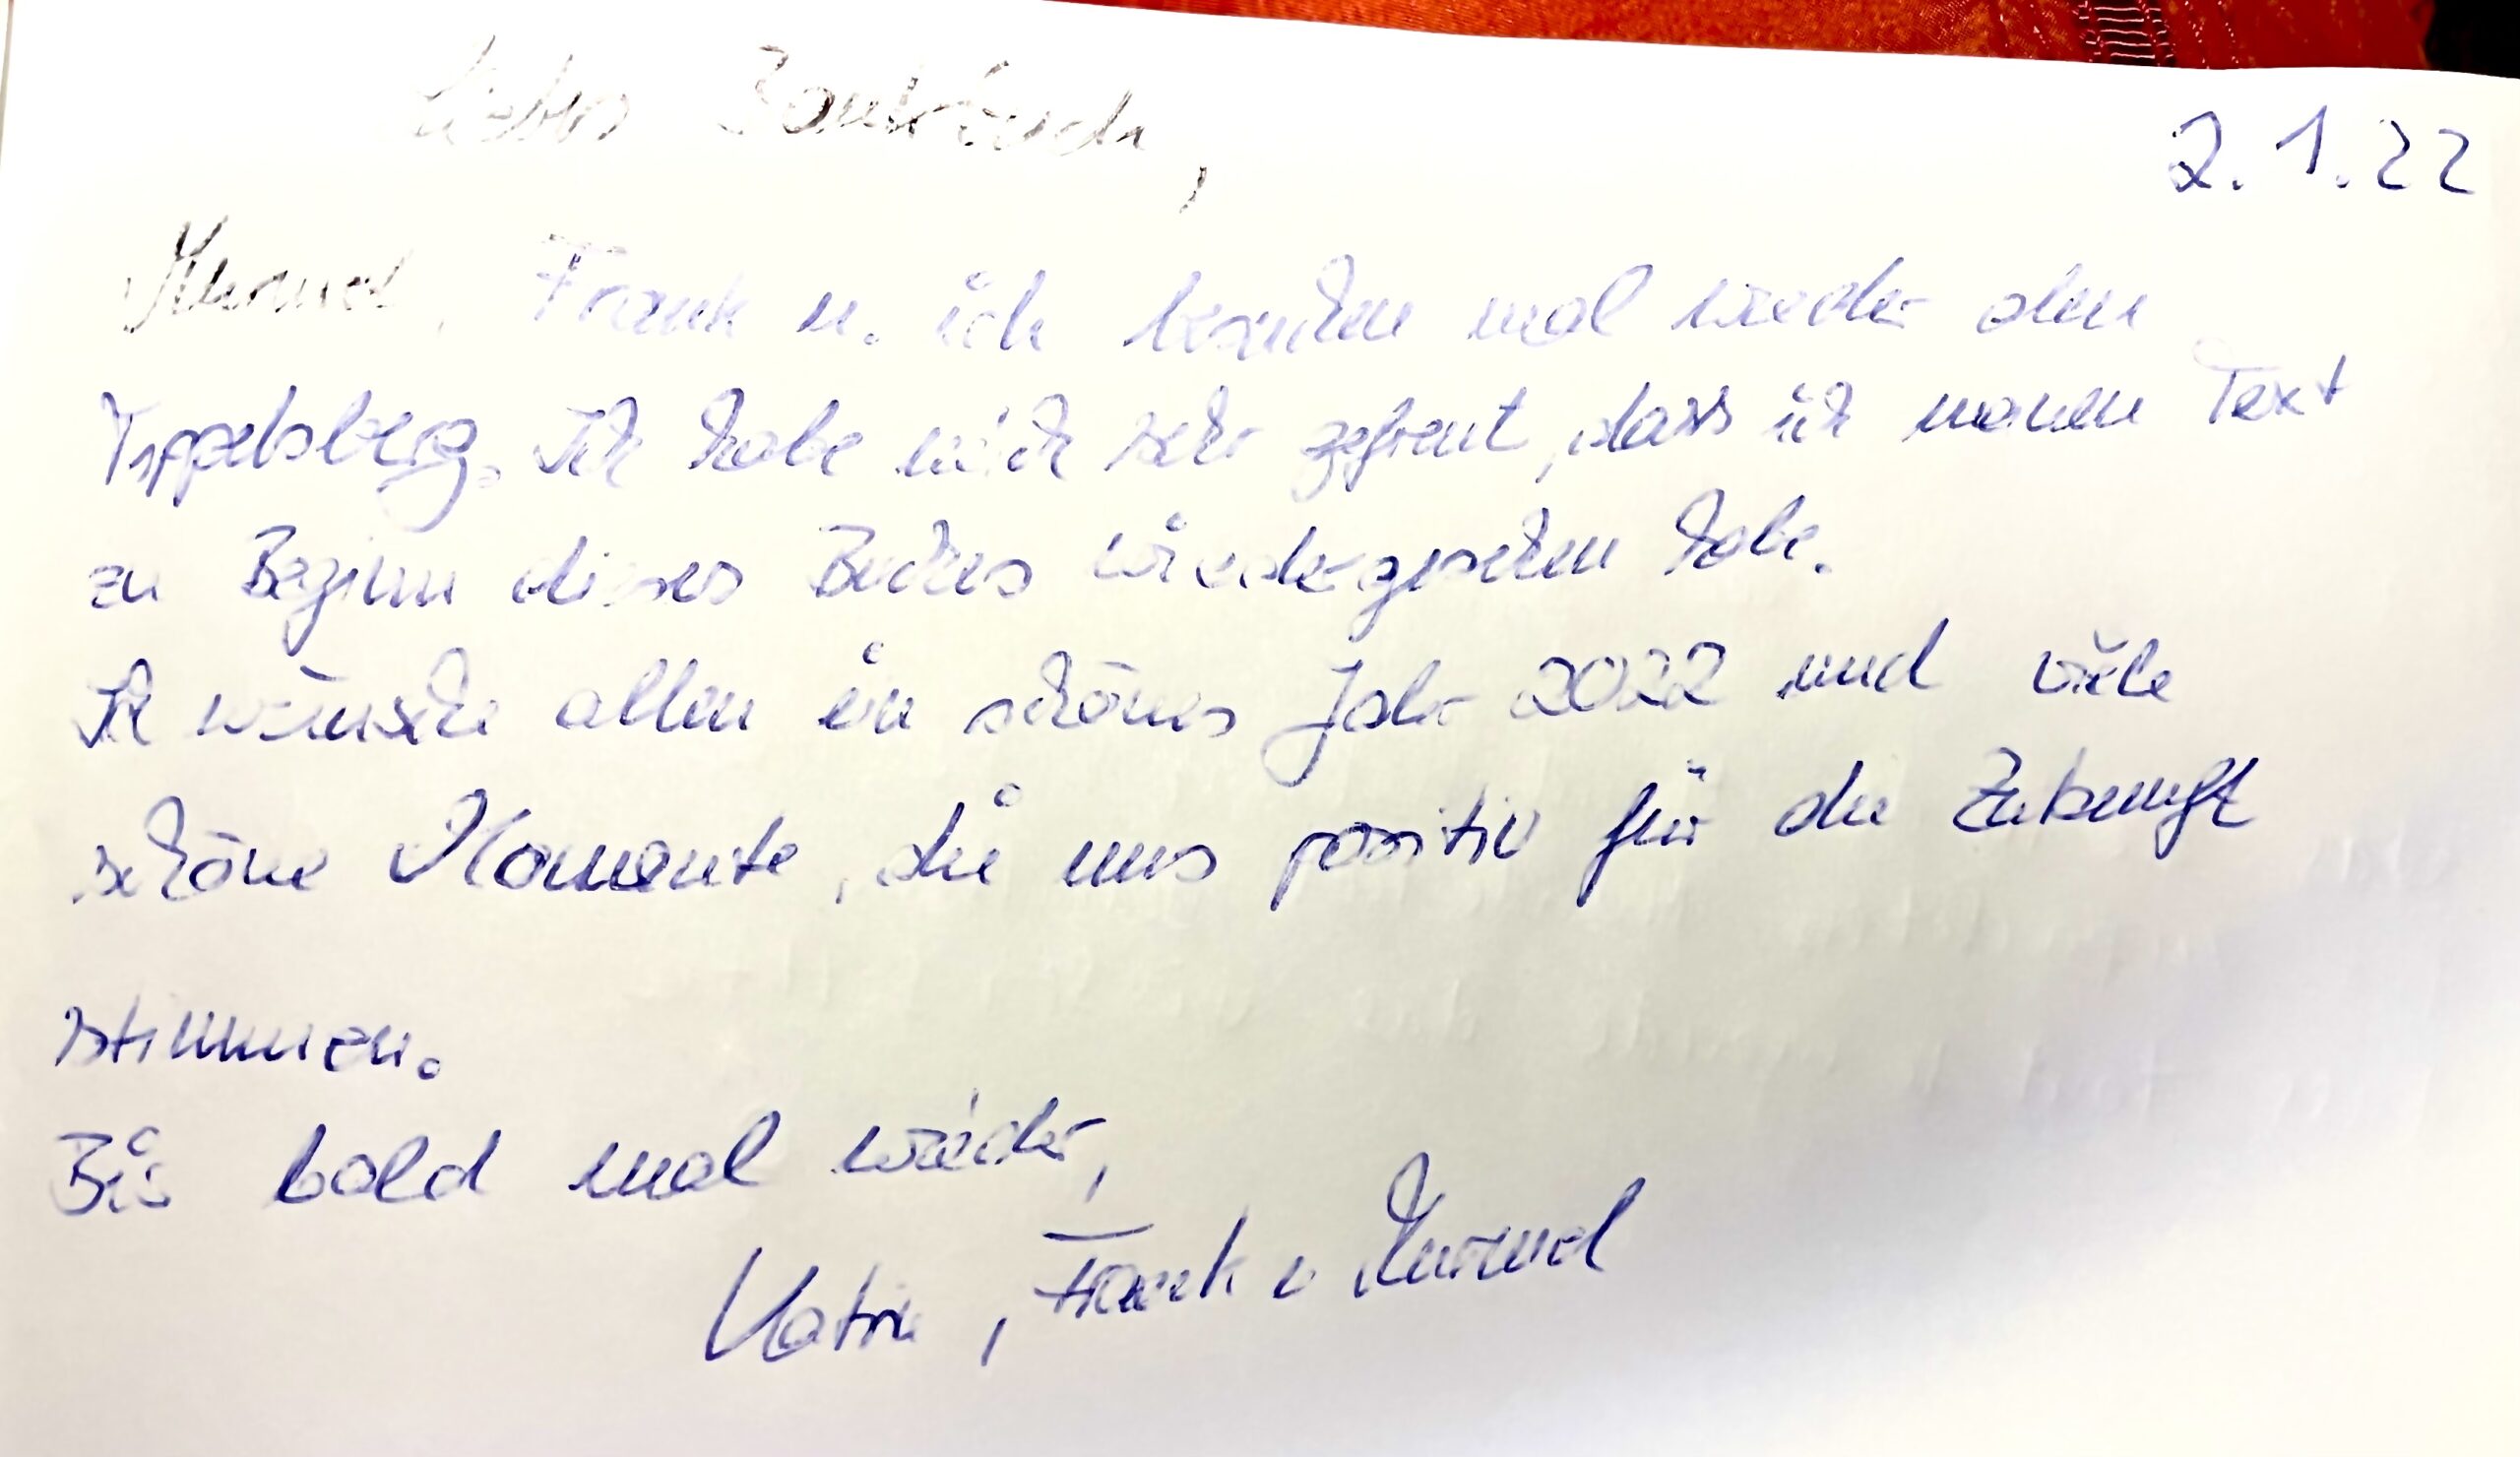 Liebes Bankbuch,
2.1.22
Murmel, Frank u. ich besuchen mal wieder den
Tippelsberg. Ich habe mich sehr gefreut, dass ich meinen Text
zu Beginn dieses Buches wiedergesehen habe.
Ich wünsche allen ein schönes Jahr 2022 und viele
schöne Momente, die uns positiv für die Zukunft
stimmen.
Bis bald mal wieder,
Katrin, Frank u Murmel